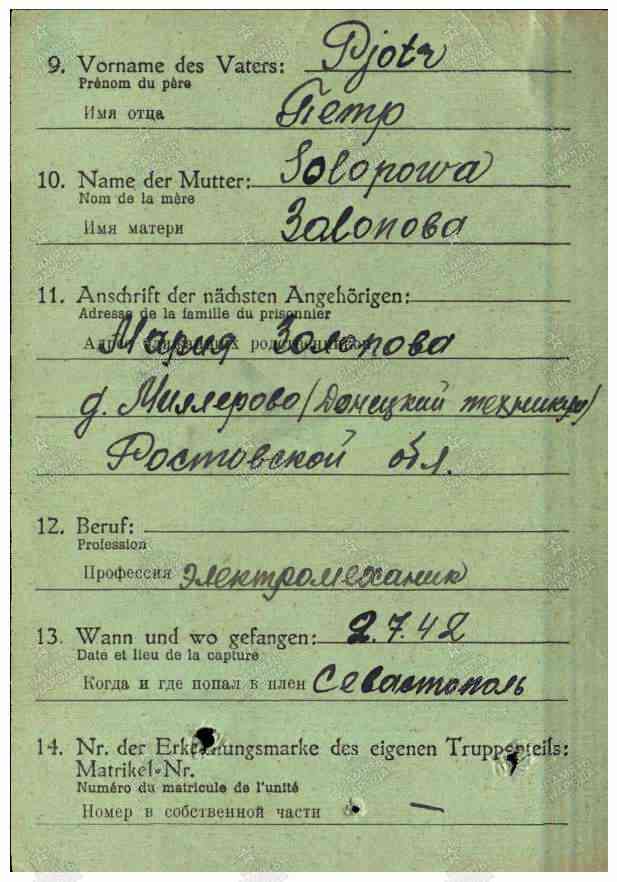 9. Vorname des Vaters: Pjotr
Prénom du père
Имя отца Петр
10. Name der Mutter: Solopowa
Nom de la mère
Имя матери Залопова
11. Anschrift der nächsten Angehörigen:
Adresse de la famille du prisonnier
Мария Золопова
г. Миллерово (Донецкий техникум)
Ростовской обл.
12. Beruf:
Profession
Профессия Электромеханик
13. Wann und wo gefangen: 2.7.42
Date et lieu de la capture
Когда и где попал в плен Севастополь
14. Nr. der Erkennungsmarke des eigenen Truppenteils:
Matrikel-Nr.
Numéro du matricule de l'unité
Номер в собственной части —